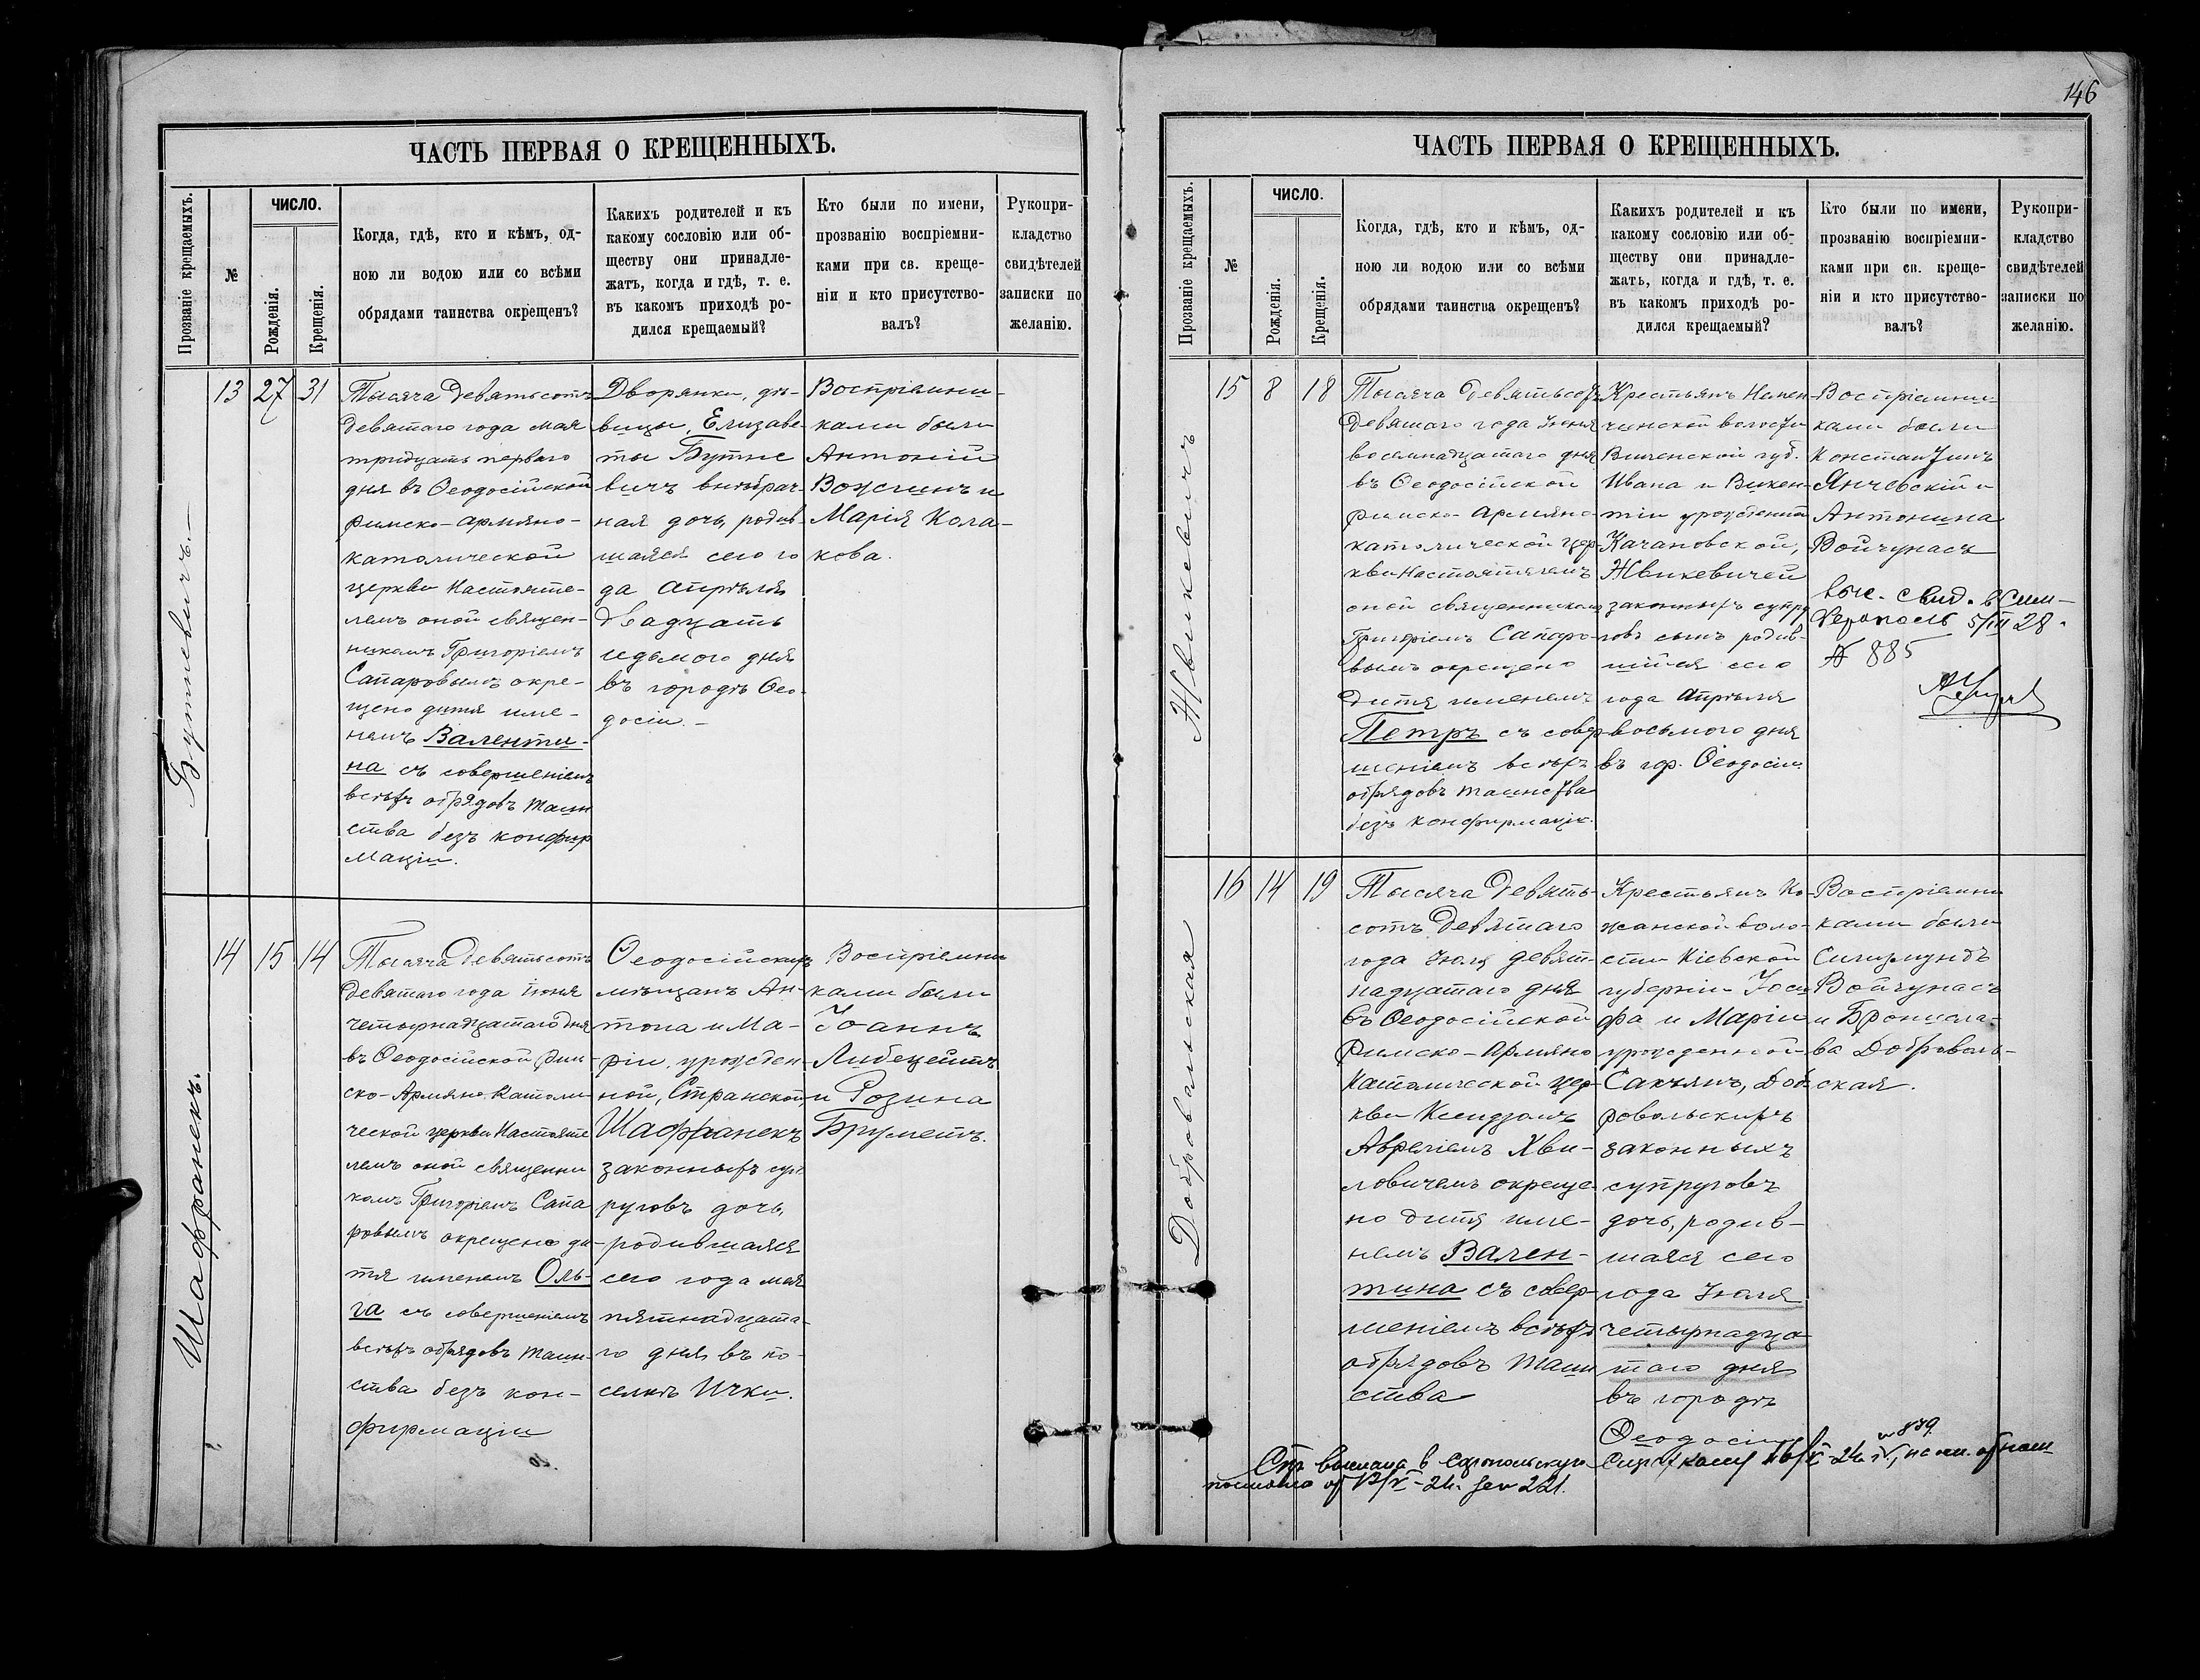 146
ЧАСТЬ ПЕРВАЯ О КРЕЩЕННЫХЪ.
Прозваніе крещаемыхъ.
№
ЧИСЛО.
Рожденія.
Крещенія.
Когда, гдѣ, кто и кѣмъ, од-
ною ли водою или со всѣми
обрядами таинства окрещенъ?
Какихъ родителей и къ
какому сословію или об-
ществу они принадле-
жатъ, когда и гдѣ, т. е.
въ какомъ приходѣ ро-
дился крещаемый?
Кто были по имени,
прозванію воспріемни-
ками при св. креще-
ніи и кто присутство-
валъ?
Рукопри-
кладство
свидѣтелей
записки по
желанію.
Бутневичъ.—
13
27
31
Тысяча девятьсотъ
девятаго года мая
тридцать перваго
дня въ Ѳеодосійской
римско-армяно-
католической
церкви Настояте-
лемъ оной священ-
никомъ Григоріемъ
Сапаровымъ окре-
щено дитя име-
немъ Валенти-
на съ совершеніемъ
всѣхъ обрядовъ таин
ства безъ конфир
маціи.
Дворянки, дѣ-
вицы, Елизаве-
ты Бутне
вичъ внѣбрач-
ная дочь, родив-
шаяся сего го
да апрѣля
двадцать
седьмого дня
въ городѣ Ѳео-
досіи.—
Воспріемни-
ками были
Антоній
Вожгинъ и
Марія Кола-
кова.
Шаффранекъ.
14
15
14
Тысяча девятьсотъ
девятаго года іюня
четырнадцатаго дня
въ Ѳеодосійской Рим-
ско-Армяно-Католи
ческой церкви Настояте
лемъ оной священни
комъ Григоріемъ Сапа
ровымъ окрещено ди-
тя именемъ Оль-
га съ совершеніемъ
всѣхъ обрядовъ таин-
ства безъ кон-
фирмаціи
Ѳеодосійскихъ
мѣщанъ Ан-
тона и Ма-
ріи, урожден-
ной, Странской,
Шаффранекъ
законныхъ суп
руговъ дочь,
родившаяся
сего года мая
пятнадцата-
го дня въ по-
селкѣ Ички.
Воспріемни
ками были
Іоаннъ
Либецейтъ
и Розина
Бруметъ.
ЧАСТЬ ПЕРВАЯ О КРЕЩЕННЫХЪ.
Прозваніе крещаемыхъ.
№
ЧИСЛО.
Рожденія.
Крещенія.
Когда, гдѣ, кто и кѣмъ, од-
ною ли водою или со всѣми
обрядами таинства окрещенъ?
Какихъ родителей и къ
какому сословію или об-
ществу они принадле-
жатъ, когда и гдѣ, т. е.
въ какомъ приходѣ ро-
дился крещаемый?
Кто были по имени,
прозванію воспріемни-
ками при св. креще-
ніи и кто присутство-
валъ?
Рукопри-
кладство
свидѣтелей
записки по
желанію.
Жвикевичъ
15
8
18
Тысяча девятьсотъ
девятаго года Іюня
восемнадцатаго дня
въ Ѳеодосійской
римско-армяно-
католической цер-
кви Настоятелемъ
оной священникомъ
Григоріемъ Сапаро-
вымъ окрещено
дитя именемъ
Петръ съ совер-
шеніемъ всѣхъ
обрядовъ таинства
безъ конфирмаціи.
Крестьянъ Немен-
чинской волости
Виленской губ.
Ивана и Викен-
тіи урожденной
Качановской,
Жвикевичей
законныхъ супру
говъ сынъ родив-
шійся сего
года апрѣля
восьмого дня
въ гор. Ѳеодосіи.
Воспріемни-
ками были
Константинъ
Янчевскій и
Антонина
Войчунасъ
выс. свид. в Сим-
ферополь 5/III 28.
№ 885
Добровольская
16
14
19
Тысяча девять-
сотъ девятаго
года Іюля девят-
надцатаго дня
въ Ѳеодосійской
Римско-Армяно
Католической цер-
кви Ксендзомъ
Авреліемъ Хви-
ловичемъ окреще-
но дитя име-
немъ Вален-
тина съ совер-
шеніемъ всѣхъ
обрядовъ таин
ства
Крестьянъ Ко-
жанской воло-
сти Кіевской
губерніи Іоси
фа и Маріи
урожденной
Сакъянъ, Доб
ровольскихъ
законныхъ
супруговъ
дочь, родив-
шаяся сего
года Іюля
четырнадца-
таго дня
въ городѣ
Ѳеодосіи
Воспріемни
ками были
Сигизмундъ
Войчунасъ
и Бронисла-
ва Доброволь-
ская.